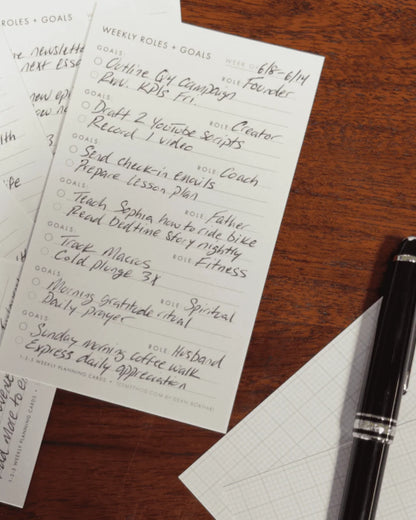 WEEKLY ROLES + GOALS
WEEK OF 6/8-6/14
GOALS: ROLE: Founder
Outline Q4 Campaign
Rvw. KPIs Fri.
GOALS: ROLE: Creator
Draft 2 YouTube Scripts
Record 1 video
GOALS: ROLE: Coach
Send check-in emails
Prepare Lesson plan
GOALS: ROLE: Father
Teach Sophia how to ride bike
Read Bedtime Story nightly
GOALS: ROLE: Fitness
Track Macros
Cold plunge 3x
GOALS: ROLE: Spiritual
Morning gratitude ritual
Daily prayer
GOALS: ROLE: Husband
Sunday morning coffee walk
Express daily appreciation
1-3-5 WEEKLY PLANNING CARDS
ROLES + GOALS
newsletter
next
new
1-3-5 WEEKLY PLANNING CARDS
more to